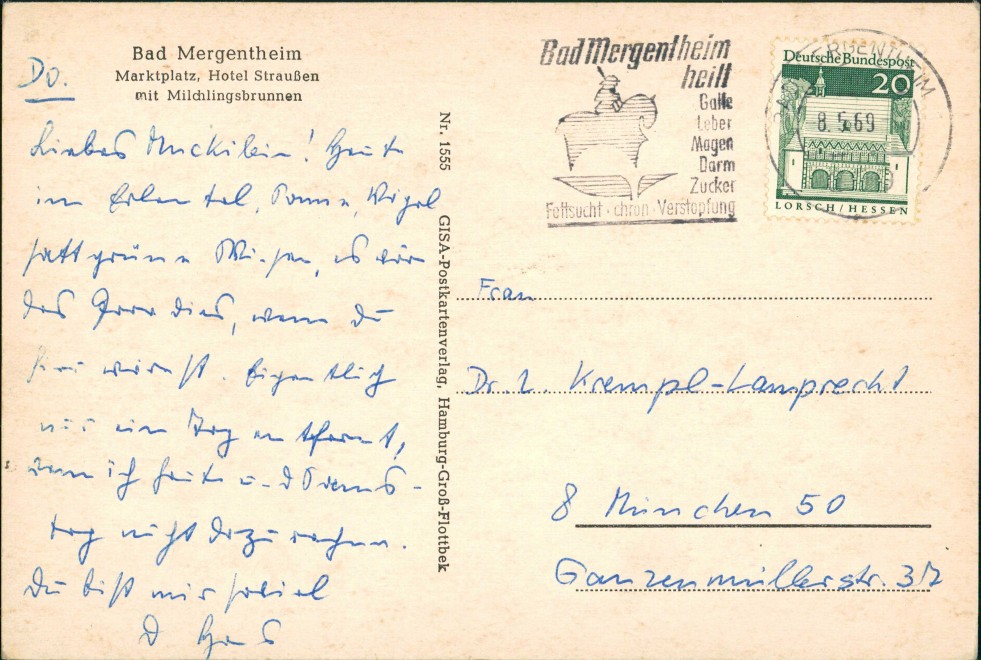 Do.
Bad Mergentheim
Marktplatz, Hotel Straußen
mit Milchlingsbrunnen
Liebes Muckilein! Heute
im Erlental, Sonne, Vögel
satt grüne Wiesen, es wär
das Paradies, wenn Du
hier wärst. Eigentlich
nur ein Tag entfernt,
wenn ich heute und Sams-
tag nicht dazu rechne.
Du bist mir so viel
D
Nr. 1555 GISA-Postkartenverlag, Hamburg-Groß-Flottbek
Bad Mergentheim
heilt
Galle
Leber
Magen
Darm
Zucker
Fettsucht · chron · Verstopfung
MERGENTHEIM
8.5.69
Deutsche Bundespost
20
LORSCH / HESSEN
Frau
Dr. I. Krempl-Lamprecht
8 München 50
Ganzenmüllerstr.